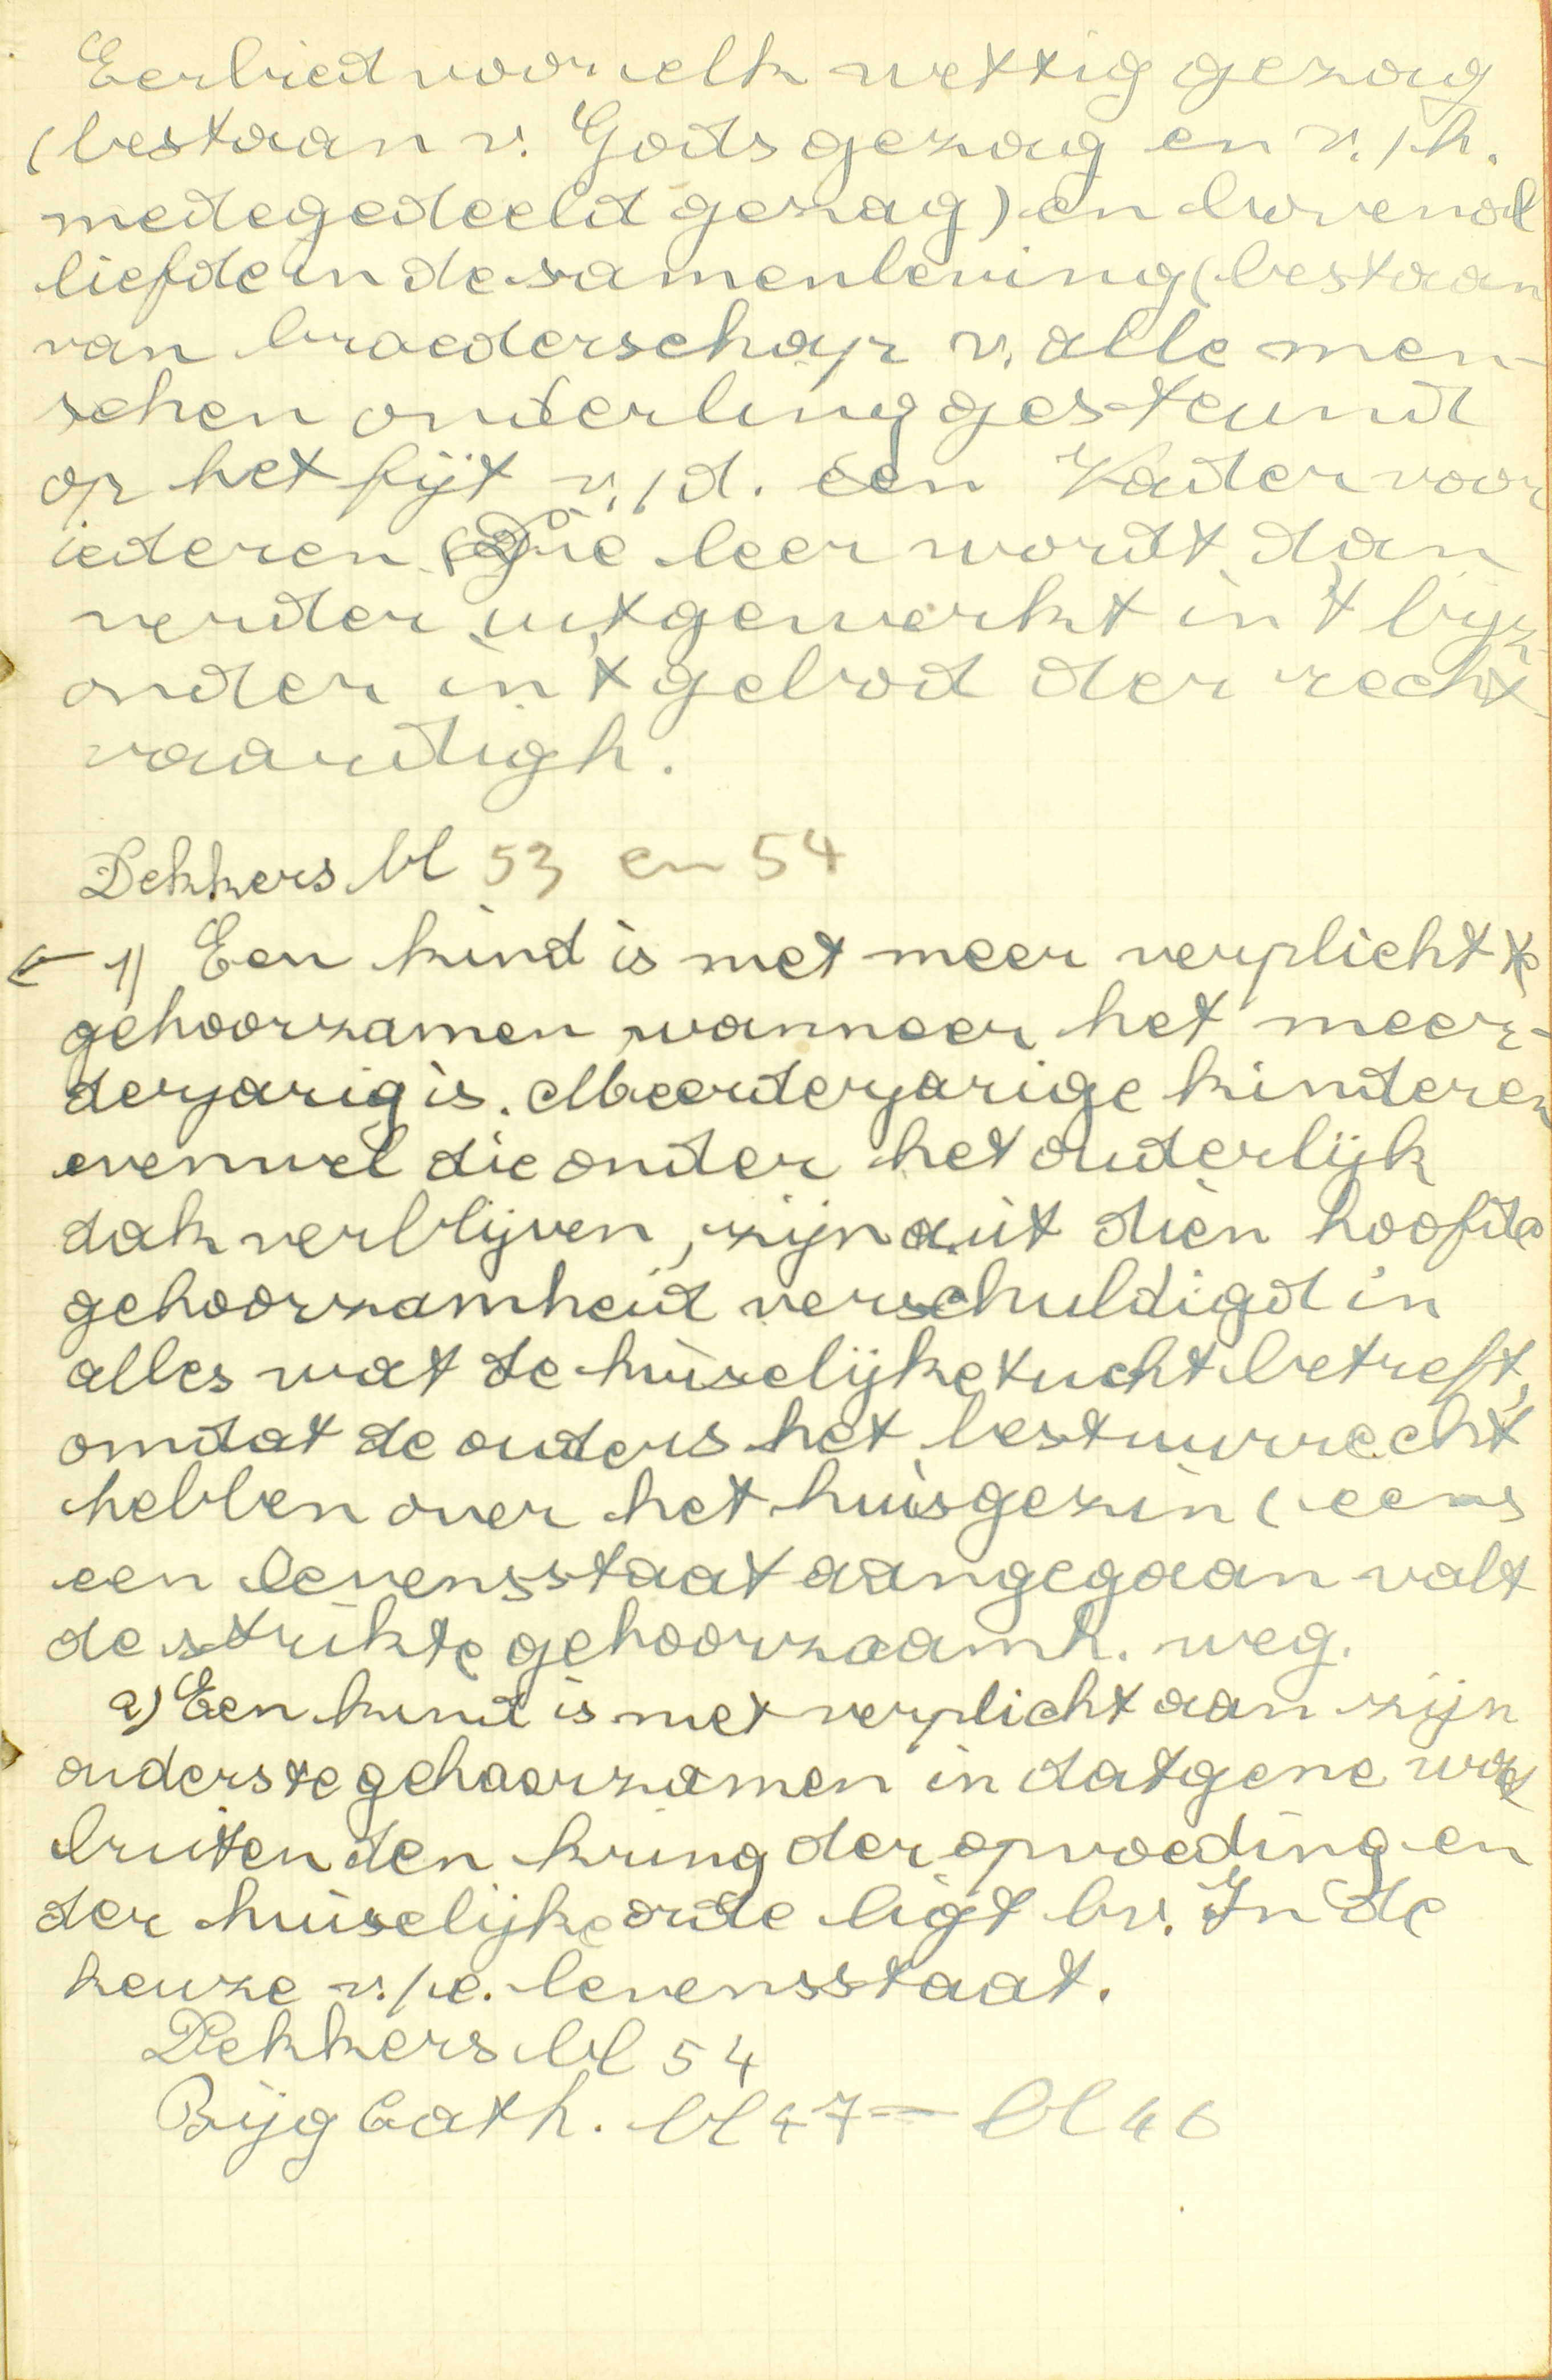 Eerbied voor elk wettig gezag
(bestaan v. Gods gezag en v./h.
medegedeeld gezag) en bovenal
liefde in de samenleving (bestaan
van broederschap v. alle men-
schen onderling gesteund
op het fijt v./d. één Vader voor
iederen. Die leer wordt dan
verder uitgewerkt in 't bijz-
onder in 't gebod der recht-
vaardigh.
Dekkers bl 53 en 54
← 1) Een kind is niet meer verplicht te
gehoorzamen wanneer het meer-
derjarig is. Meerderjarige kinderen
evenwel die onder het ouderlijk
dak verblijven, zijn uit dien hoofde
gehoorzamheid verschuldigd in
alles wat de huiselijke tucht betreft,
omdat de ouders het bestuurrecht
hebben over het huisgezin (eens
een levensstaat aangegaan valt
de strikte gehoorzaamh. weg.
2) Een kind is niet verplicht aan zijn
ouders te gehoorzamen in datgene wat
buiten den kring der opvoeding en
der huiselijke orde ligt bv. In de
keuze v./e. levensstaat.
Dekkers bl 54
Bijg Cath. bl 47 — bl 46